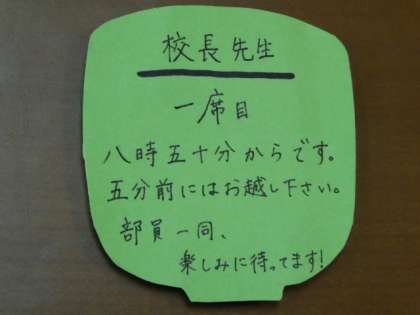 校長先生
一席目
八時五十分からです。
五分前にはお越し下さい。
部員一同、
楽しみに待ってます!